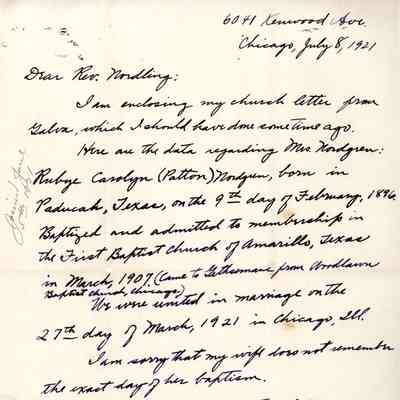 6041 Kenwood Ave.
Chicago, July 8, 1921
Dear Rev. Nordling:
I am enclosing my church letter from
Galva, which I should have done some time ago.
Here are the data regarding Mrs. Nordgren:
Rubye Carolyn (Patton) Nordgren, born in
Paducah, Texas, on the 9th day of February, 1896.
Baptized and admitted to membership in
the First Baptist Church of Amarillo, Texas
in March, 1907. (Came to Gethsemane from Woodlawn
Baptist Church, Chicago)
We were united in marriage on the
27th day of March, 1921 in Chicago, Ill.
I am sorry that my wife does not remember
the exact day of her baptism.